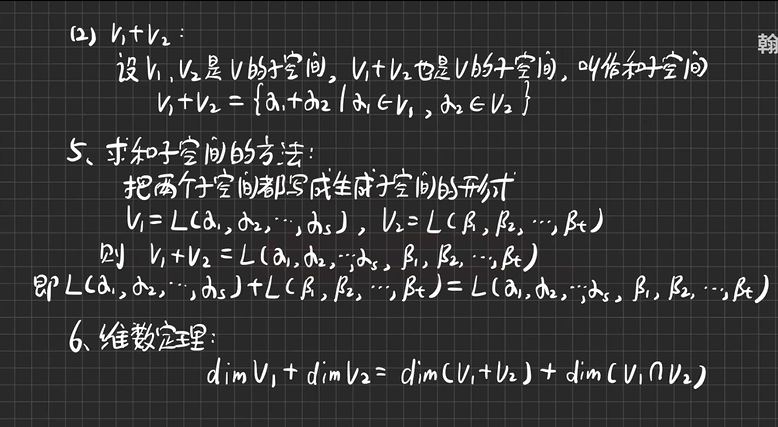 (2) V₁+V₂:
翰
设V₁,V₂是V的子空间,V₁+V₂也是V的子空间,叫作和子空间
V₁+V₂={α₁+α₂|α₁∈V₁,α₂∈V₂}
5、求和子空间的方法:
把两个子空间都写成生成子空间的形式
V₁=L(α₁,α₂,⋯,αₛ),V₂=L(β₁,β₂,⋯,βₜ)
则 V₁+V₂=L(α₁,α₂,⋯,αₛ,β₁,β₂,⋯,βₜ)
即L(α₁,α₂,⋯,αₛ)+L(β₁,β₂,⋯,βₜ)=L(α₁,α₂,⋯,αₛ,β₁,β₂,⋯,βₜ)
6、维数定理:
dimV₁+dimV₂=dim(V₁+V₂)+dim(V₁∩V₂)